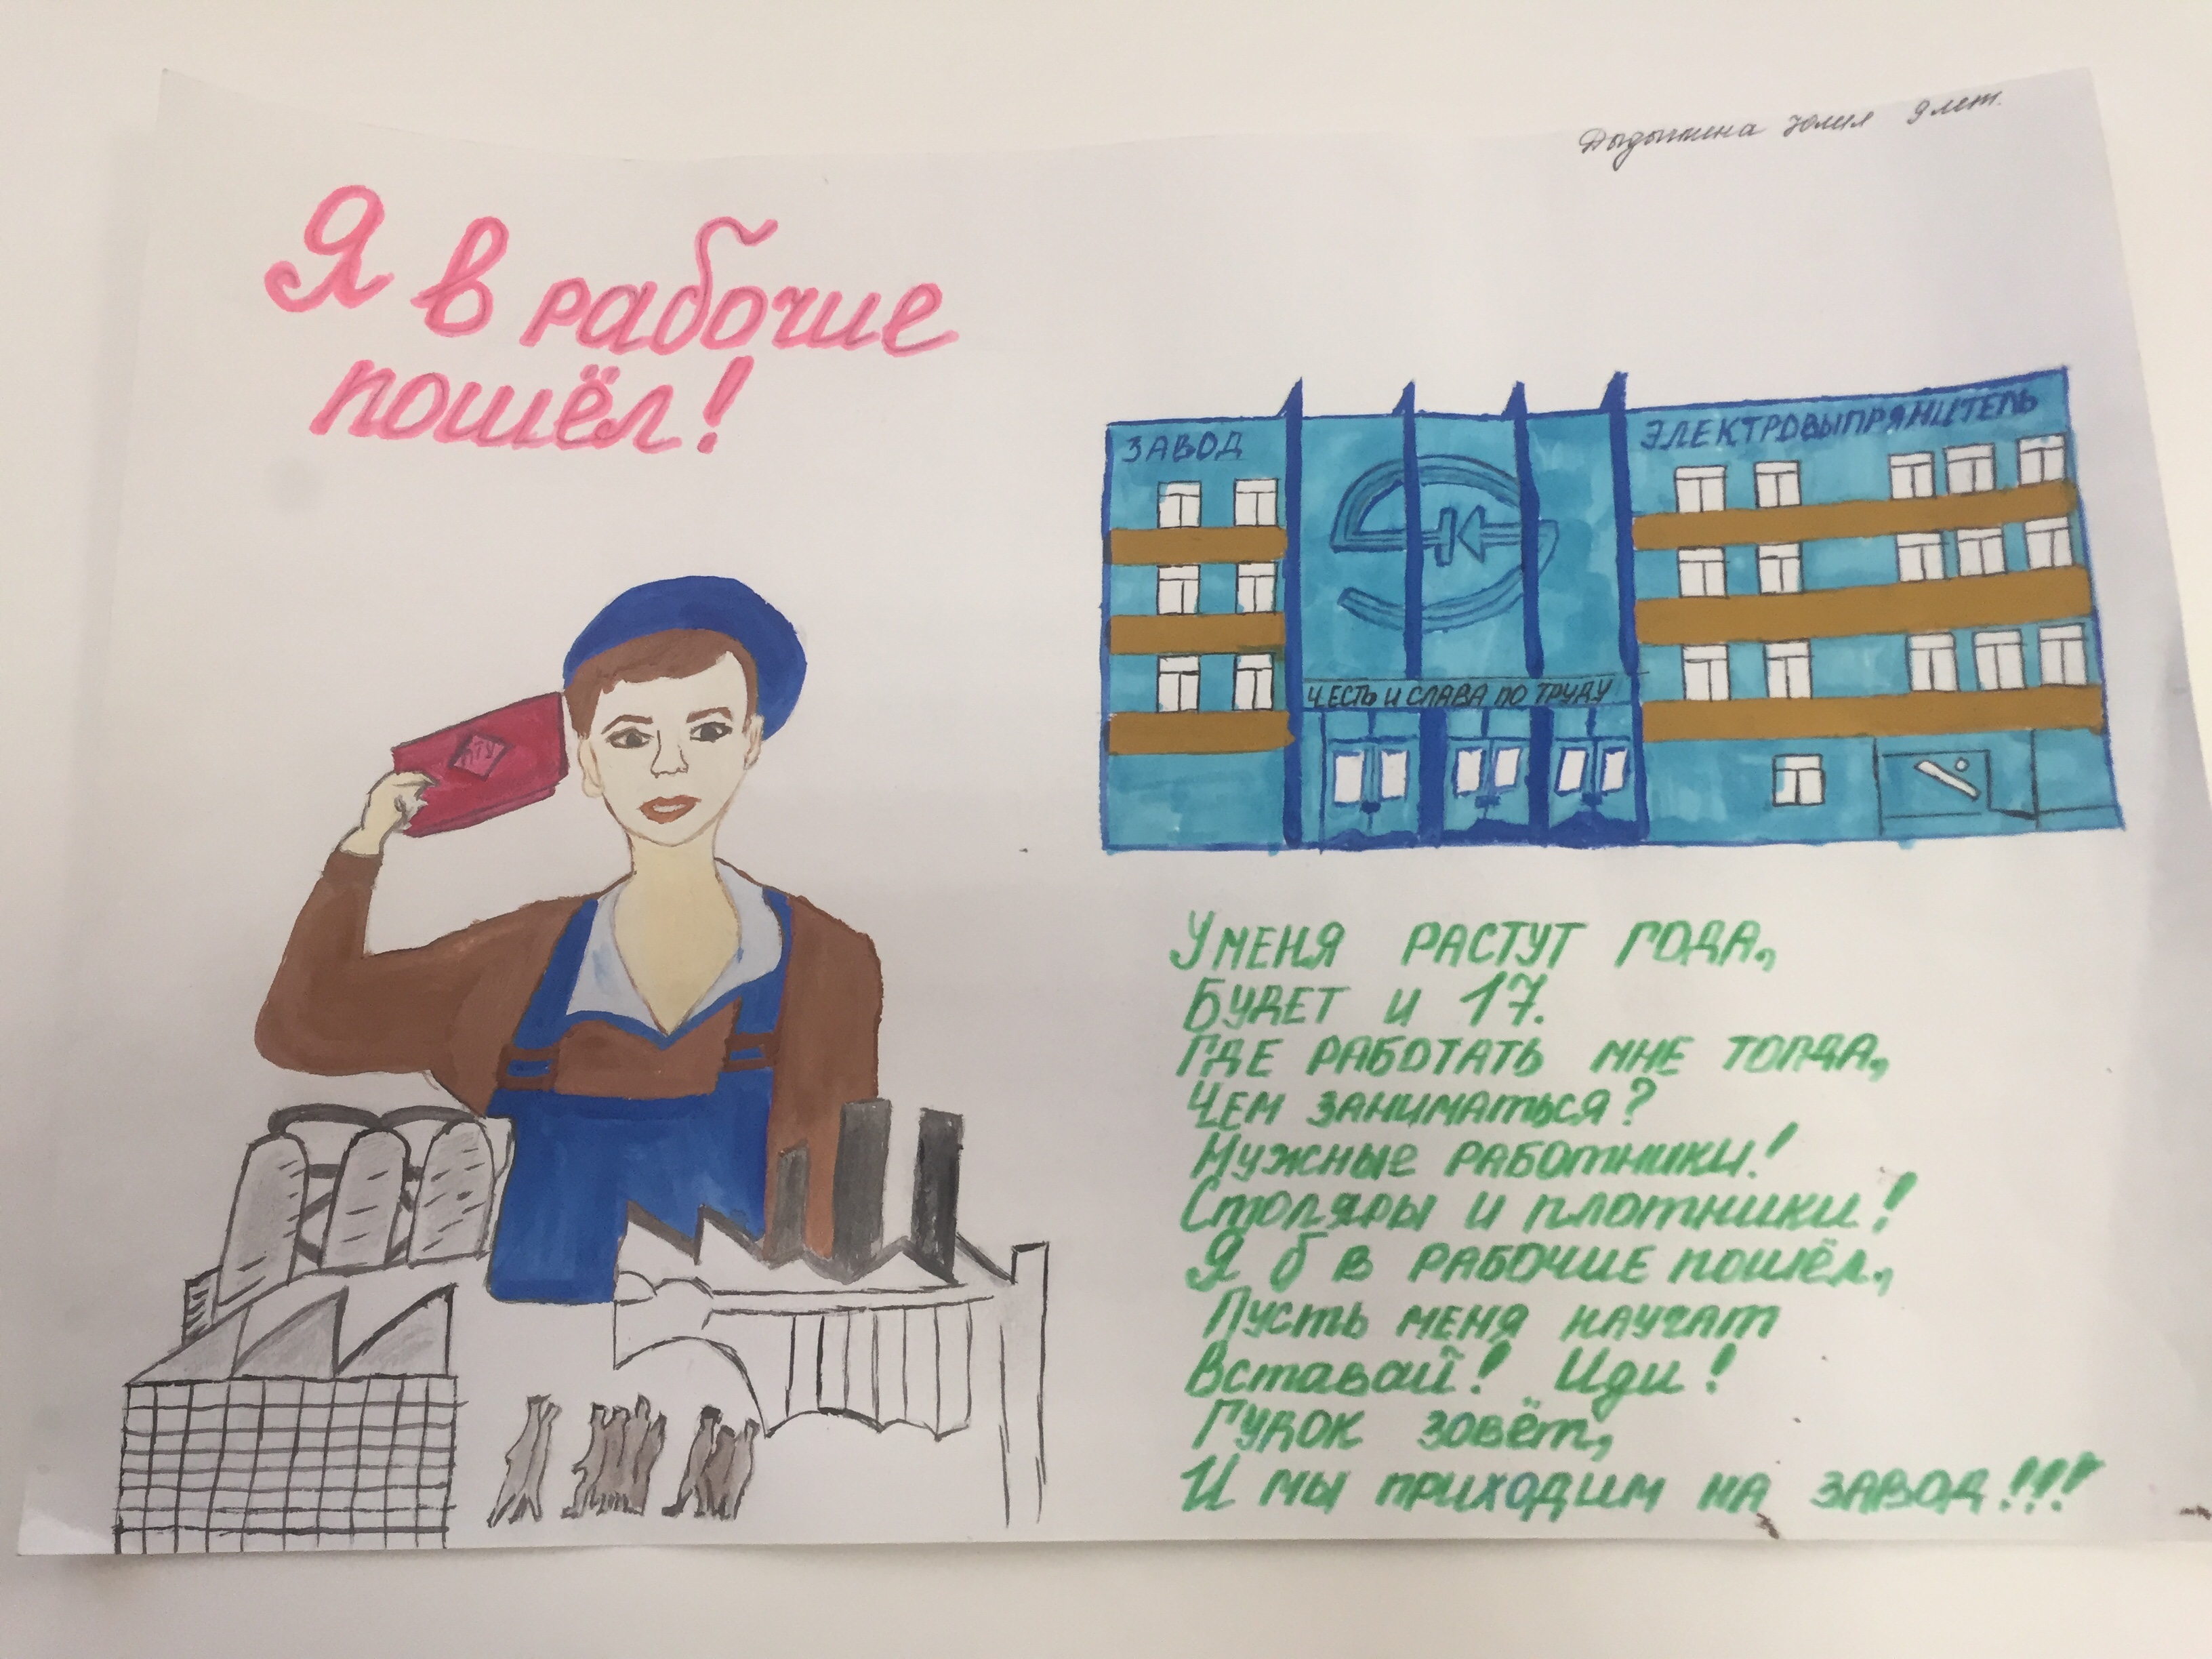 Дыдыкина Юлия 9 лет.
Я в рабочие
пошёл!
ЗАВОД
ЭЛЕКТРОВЫПРЯМИТЕЛЬ
ЧЕСТЬ И СЛАВА ПО ТРУДУ
ПТУ
У МЕНЯ РАСТУТ ГОДА,
БУДЕТ И 17.
ГДЕ РАБОТАТЬ МНЕ ТОГДА,
ЧЕМ ЗАНИМАТЬСЯ?
НУЖНЫЕ РАБОТНИКИ!
СТОЛЯРЫ И ПЛОТНИКИ!
Я Б В РАБОЧИЕ ПОШЁЛ,
ПУСТЬ МЕНЯ НАУЧАТ
Вставай! Иди!
ГУДОК ЗОВЁТ,
И МЫ ПРИХОДИМ НА ЗАВОД!!!